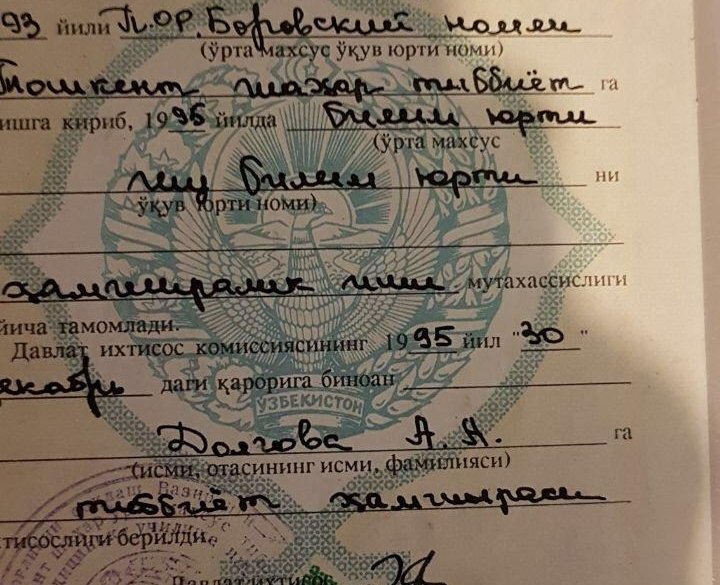 93 йили П.Ф. Боровский номли
(ўрта махсус ўқув юрти номи)
Тошкент шаҳар тиббиёт га
ишга кириб, 1995 йилда билим юрти
(ўрта махсус
билим юрти ни
ўқув юрти номи)
ҳамширалик иши мутахассислиги
йича тамомлади.
Давлат ихтисос комиссиясининг 1995 йил "30"
декабрь даги қарорига биноан
ЎЗБЕКИСТОН
Долгова А. А. га
(исми, отасининг исми, фамилияси)
тиббиёт ҳамшираси
тисослиги берилди.
Давлат ихтисос